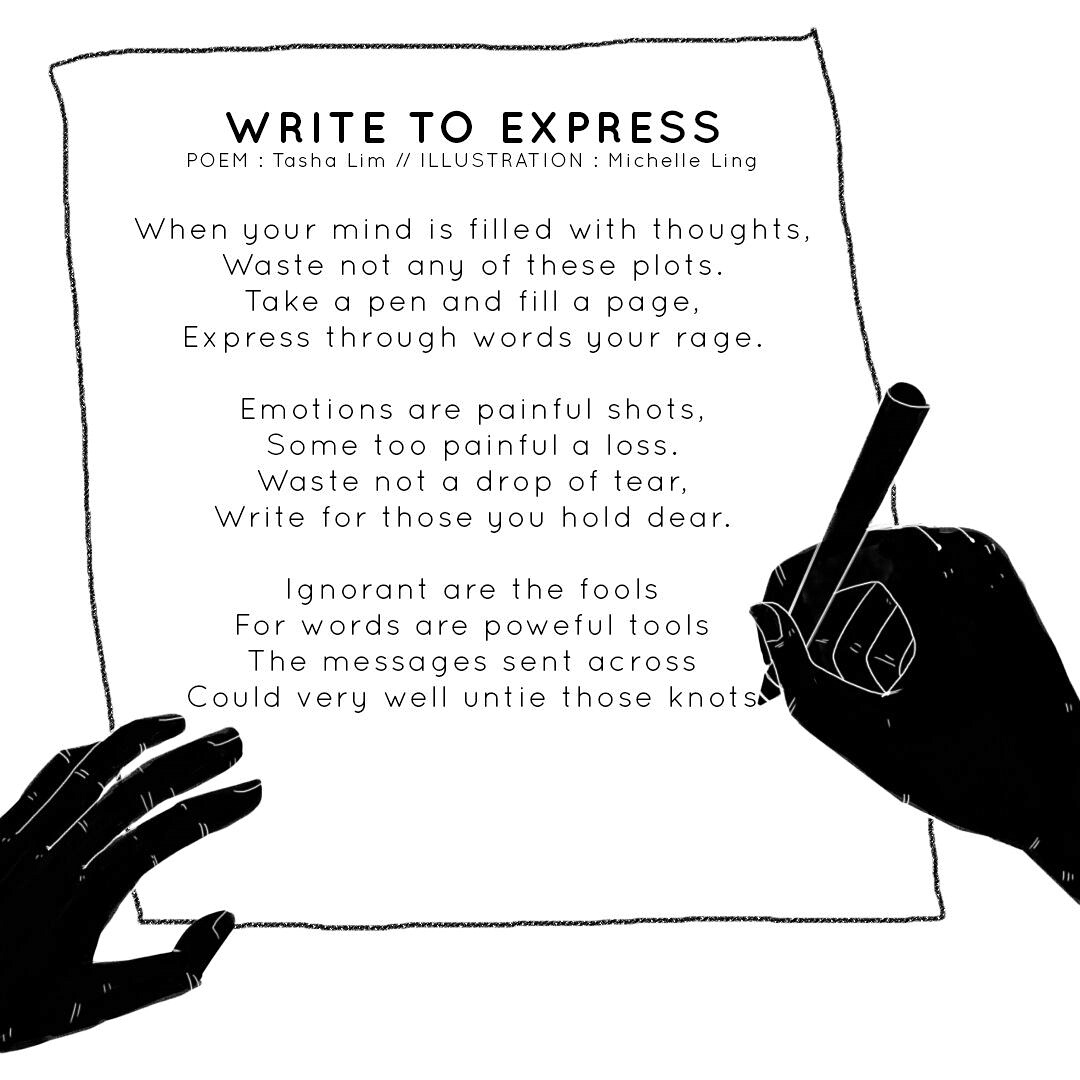 WRITE TO EXPRESS
POEM : Tasha Lim // ILLUSTRATION : Michelle Ling
When your mind is filled with thoughts,
Waste not any of these plots.
Take a pen and fill a page,
Express through words your rage.
Emotions are painful shots,
Some too painful a loss.
Waste not a drop of tear,
Write for those you hold dear.
Ignorant are the fools
For words are poweful tools
The messages sent across
Could very well untie those knots